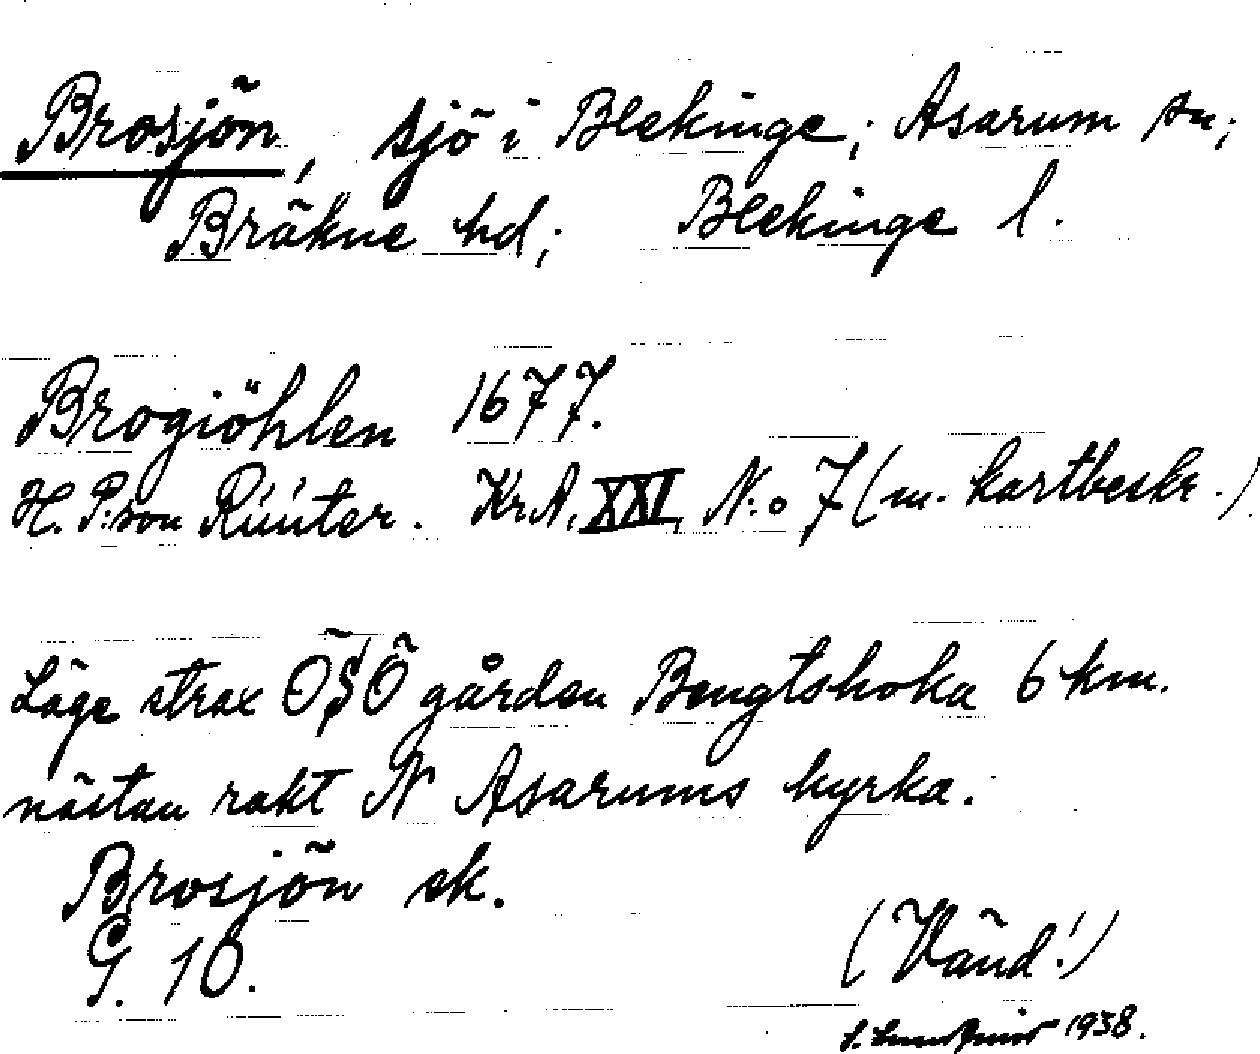 Brosjön, sjö i Blekinge; Asarum sn;
Bräkne hd; Blekinge l.
Brogiöhlen 1677.
H. P:son Rúúter. Kr.A. XXI, N:o 7 (m. kartbeskr.).
Läge strax ÖSÖ gården Bengtshoka 6 km.
nästan rakt N Asarums kyrka.
Brosjön ek.
G. 10.
(Vänd!)
1938.